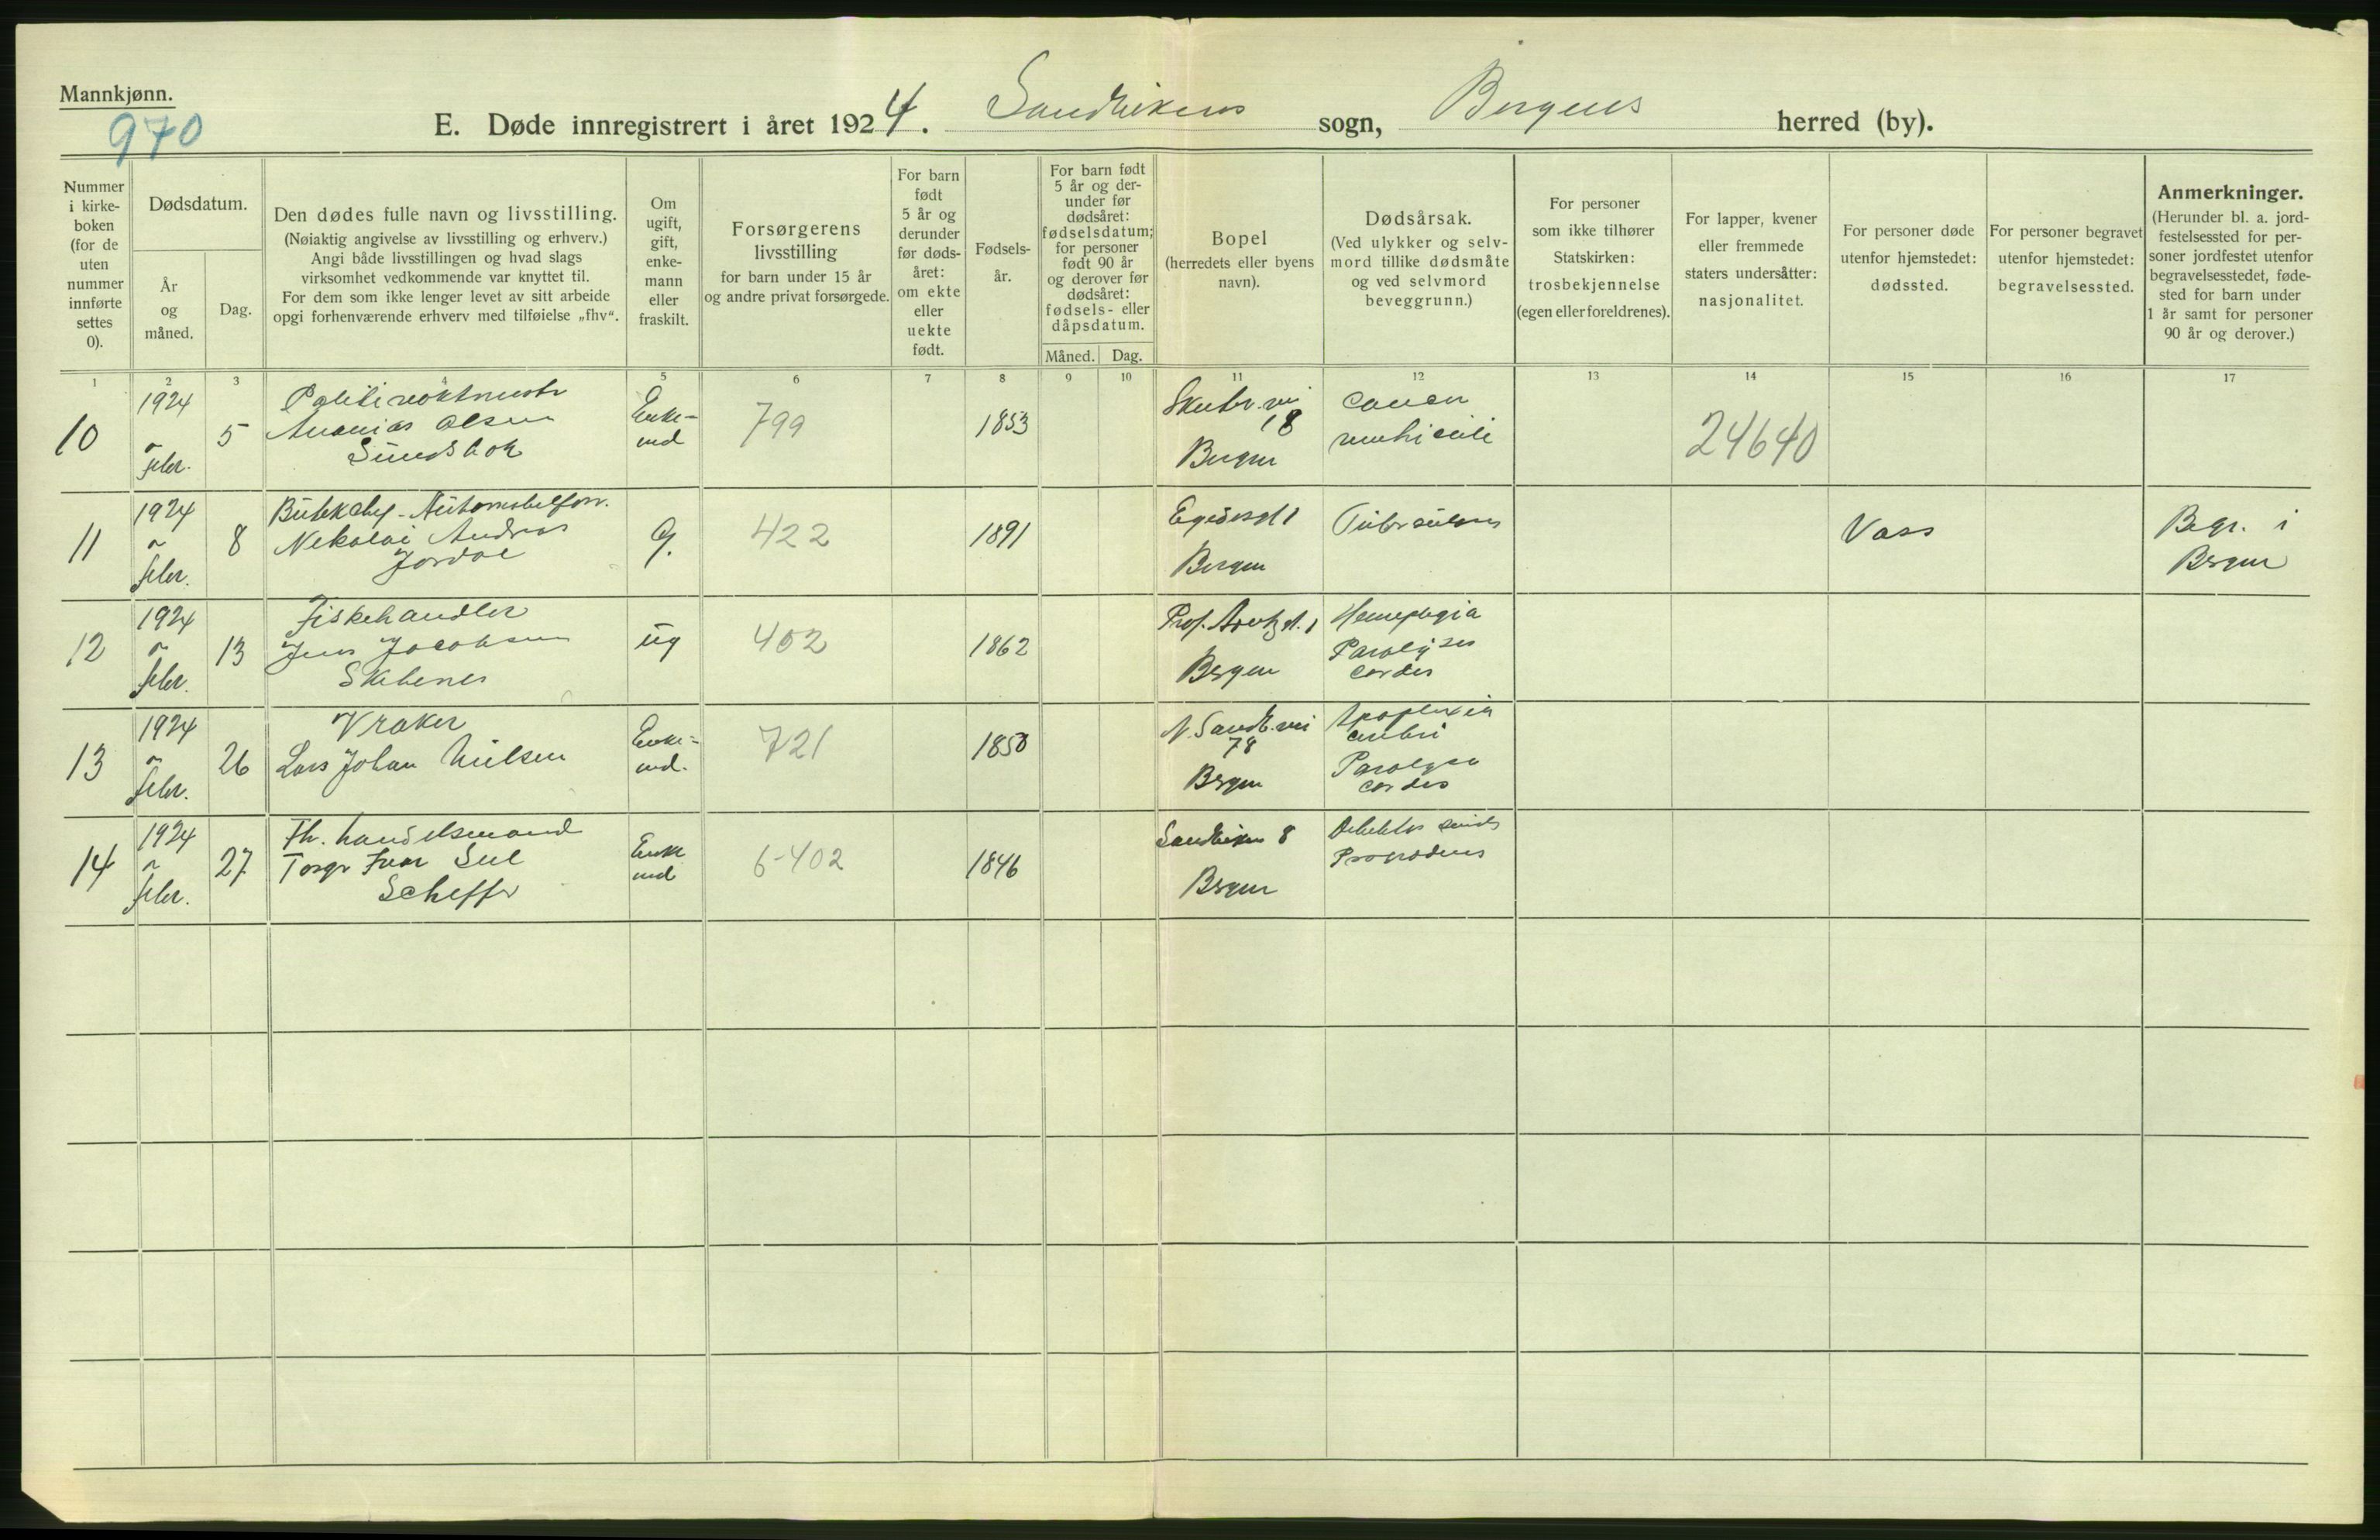 Mannkjønn.
970
E. Døde innregistrert i året 1924. Sandvikens sogn, Bergens herred (by).
Nummer i kirke-boken (for de uten nummer innførte settes 0).
Dødsdatum.
År og måned.
Dag.
Den dødes fulle navn og livsstilling.
(Nøiaktig angivelse av livsstilling og erhverv.)
Angi både livsstillingen og hvad slags
virksomhet vedkommende var knyttet til.
For dem som ikke lenger levet av sitt arbeide
opgi forhenværende erhverv med tilføielse „fhv“.
Om ugift, gift, enke-mann eller fraskilt.
Forsørgerens
livsstilling
for barn under 15 år
og andre privat forsørgede.
For barn født 5 år og derunder før døds-året: om ekte eller uekte født.
Fødsels-år.
For barn født 5 år og der-under før dødsåret: fødselsdatum; for personer født 90 år og derover før dødsåret: fødsels- eller dåpsdatum.
Måned. Dag.
Bopel
(herredets eller byens navn).
Dødsårsak.
(Ved ulykker og selv-mord tillike dødsmåte og ved selvmord beveggrunn.)
For personer som ikke tilhører Statskirken: trosbekjennelse (egen eller foreldrenes).
For lapper, kvener eller fremmede staters undersåtter: nasjonalitet.
For personer døde utenfor hjemstedet: dødssted.
For personer begravet utenfor hjemstedet: begravelsessted.
Anmerkninger.
(Herunder bl. a. jord-festelsessted for per-soner jordfestet utenfor begravelsesstedet, føde-sted for barn under 1 år samt for personer 90 år og derover.)
1 2 3 4 5 6 7 8 9 10 11 12 13 14 15 16 17
10 1924 febr. 5 Ananias Olsen Enke-md 799 1853 18 Bergen Cancer ventriculi 24640
11 1924 febr. 8 Nikolai Andreas Jordal g. 422 1891 Bergen Tuberculosis Voss Begr. i Bergen
12 1924 febr. 13 Fiskehandler Jens Jacobsen ug 402 1862 Bergen Hemiplegia Paralysis cordis
13 1924 febr. 26 Vraker Lars Johan Nielsen Enke-md. 721 1850 N. Sandv.vei 78 Bergen Apoplexia cerebri Paralysis cordis
14 1924 febr. 27 Fh. handelsmand Scheffer Enke md 6-402 1846 Sandviken 8 Bergen